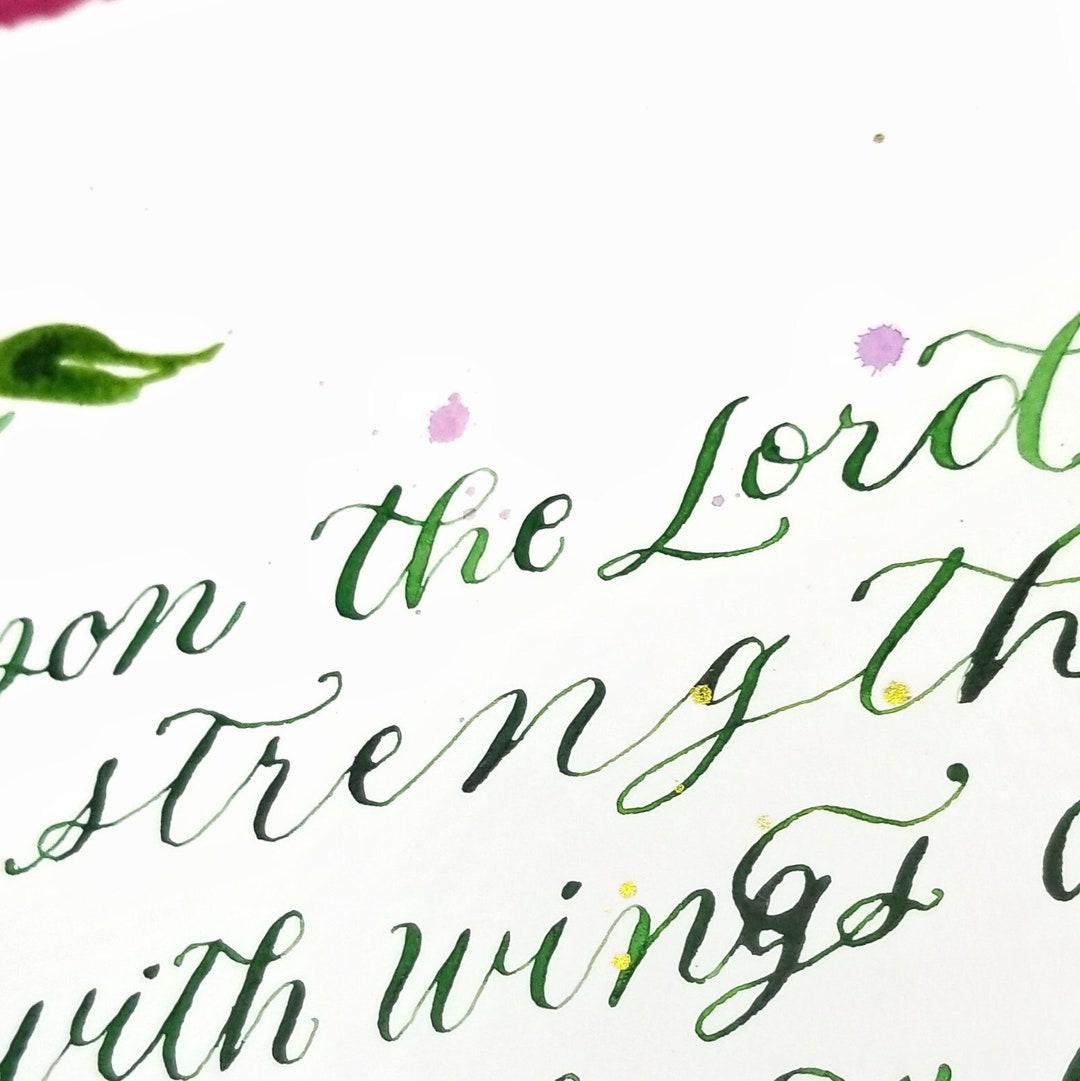 pon the Lord
strength
with wings